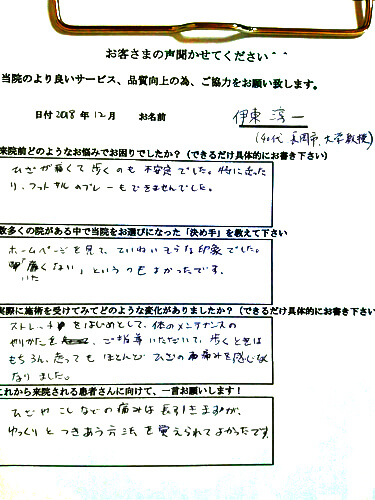 お客さまの声聞かせてください＾＾
当院のより良いサービス、品質向上の為、ご協力をお願い致します。
日付 2018 年 12 月 お名前 伊東 淳一
(40代 長岡市 大学教授)
来院前どのようなお悩みでお困りでしたか？（できるだけ具体的にお書き下さい）
ひざが痛くて歩くのも不安定でした。特に走った
り、フットサルのプレーもできませんでした。
数多くの院がある中で当院をお選びになった「決め手」を教えて下さい
ホームページを見て、ていねいそうな印象でした。
「痛くない」というのもよかったです。
実際に施術を受けてみてどのような変化がありましたか？（できるだけ具体的にお書き下さい）
ストレッチをはじめとして、体のメンテナンスの
やりかたを ご指導いただいて、歩くときは
もちろん、走っても ほとんど ひざの痛みを感じなく
なりました。
これから来院される患者さんに向けて、一言お願いします！
ひざや こしなどの痛みは長引きますが、
ゆっくりと つきあう方法を 覚えられてよかったです。